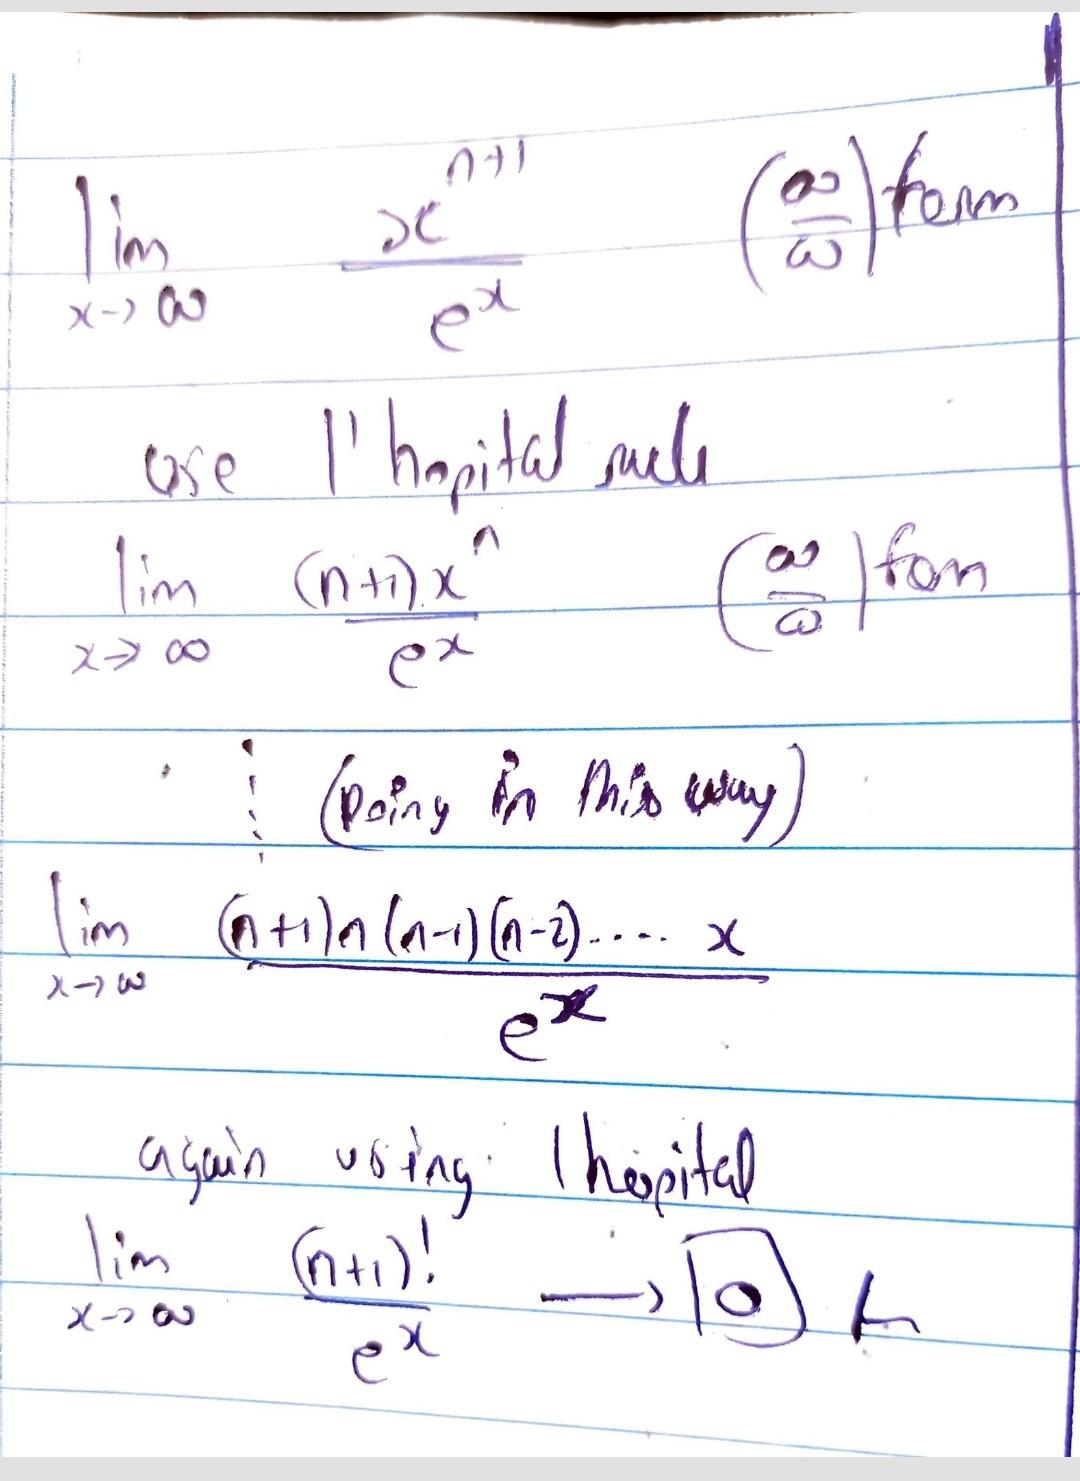 lim x→∞ x^(n+1) / e^x (∞/∞) form
use l'hopital rule
lim x→∞ (n+1).x^n / e^x (∞/∞) form
(Doing in this way)
lim x→∞ (n+1)n(n-1)(n-2)..... x / e^x
again using l hopital
lim x→∞ (n+1)! / e^x → 0